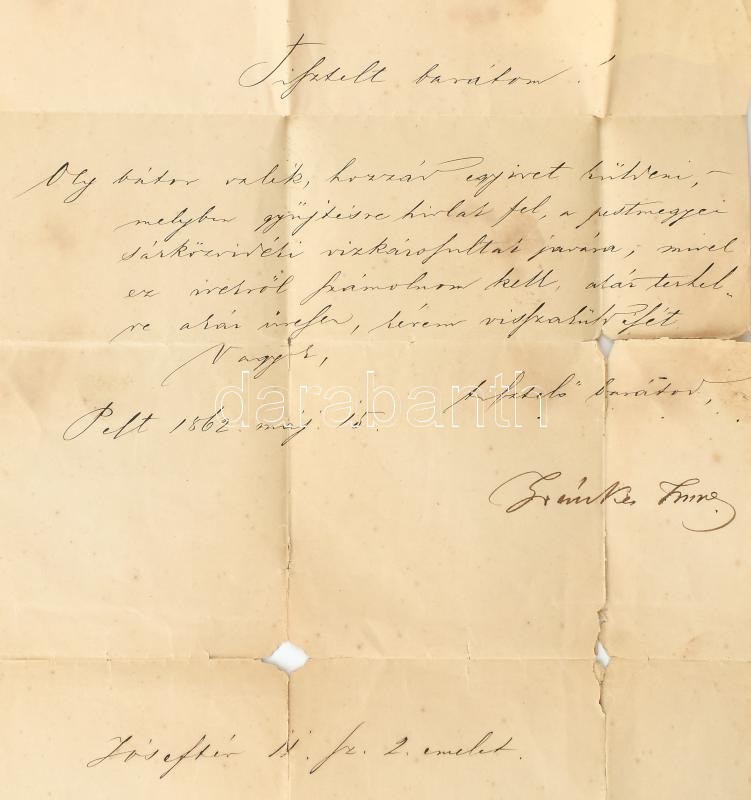 Tisztelt barátom!
Oly bátor valék, hozzád egy ivet küldeni, –
melyben gyűjtésre hivlak fel, a pestmegyei
sárközvidéki vizkárosultak javára, mivel
ez ivekről számolnom kell, akár terhel„
ve akár üresen, kérem visszaküldését
Vagyok,
tisztelő barátod,
Pest 1862 máj. 15.
Imre
Jósef tér 11. sz. 2. emelet.
darabanth